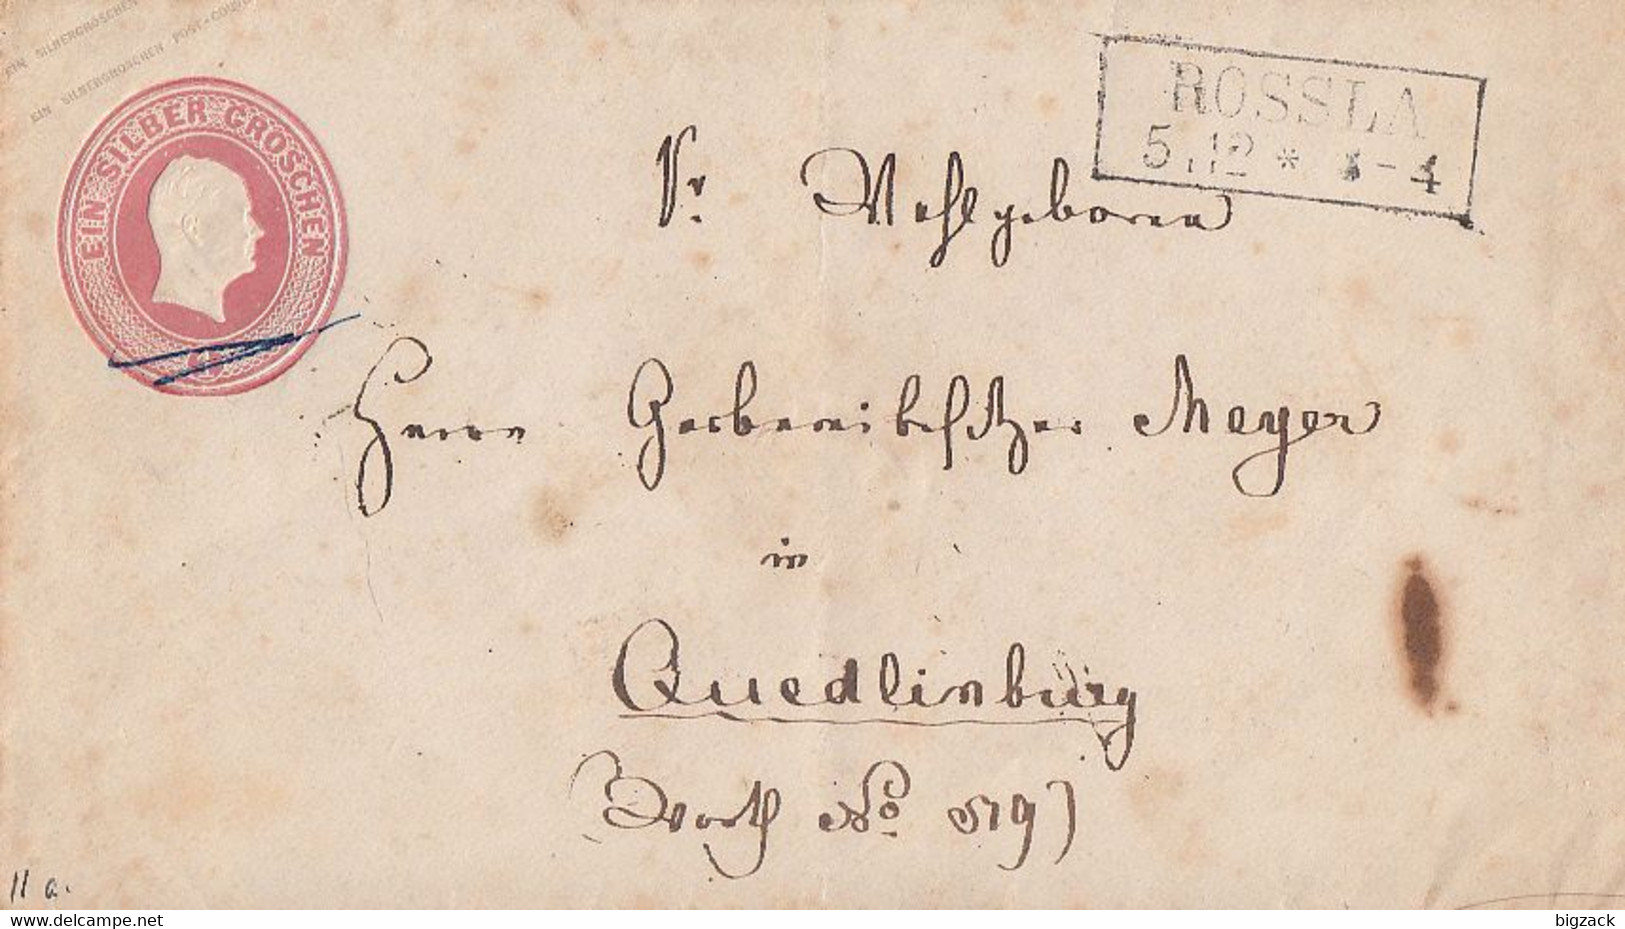 EIN SILBERGROSCHEN
EIN SILBERGROSCHEN POST-COUVERT
EIN SILBER GROSCHEN
ROSSLA
5 12 * 3-4
Sr. Wohlgeboren
Herrn Gerbereibesitzer Meyer
in
Quedlinburg
(Worth No 519)
11 a.
delcampe.net
bigzack